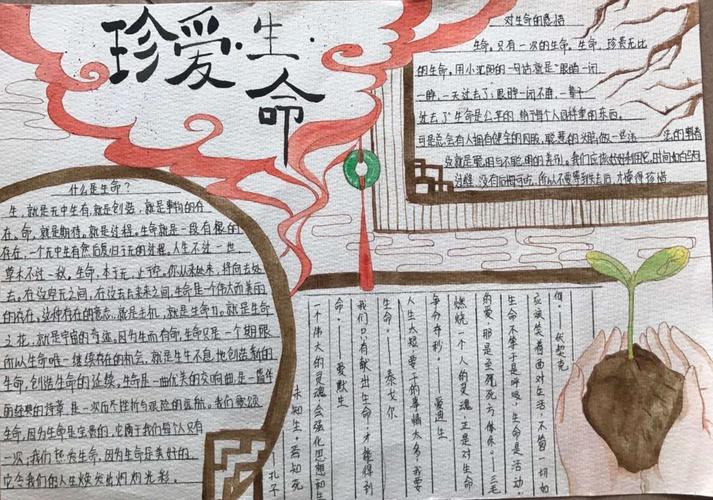 珍爱·生命
对生命的感悟
生命,只有一次的生命,生命,珍贵无比
的生命,用小沈阳的一句话就是"眼睛一闭
一睁,一天过去了;眼睛一闭不睁,一辈子
过去了"生命是公平的,给予每个人同样重的东西。
可是总会有人拥有健全的四肢,聪慧的
这就是聪明与不聪明的表别。我们应该好好利用它,时间如白驹
过隙,没有后悔可言,所以不要等到失去后才懂得珍惜
什么是生命?
生,就是无中生有,就是创造,就是事物的存
在,命,就是期待,就是过程,生命就是一段有根的
存在,一个无中生有然后复归于无的过程,人生不过一世,
草木不过一秋,生命,本于无,止于冲,你从来处来,将向去处
去,在这空无之间,在这去与未来之间,生命是个伟大而美丽
的存在,这种存在的意志,就是主机,就是生命力。就是生命
之花,就是宇宙的奇迹,因为生而有命,生命只是一个期限
所以生命唯一继续存在的机会,就是生生不息地创造新的
生命,创造生命的延续,生命是一曲优美的交响曲,是一篇华
丽经典的诗章,是一次历尽挫折与艰险的远航。我们歌颂
生命,因为生命是宝贵的,它属于我们每个人只有
一次;我们热爱生命,因为生命是美好的。
它令我们的人生焕发出灼灼光彩。
但。——伏契克
应该笑着面对生活,不管一切如
生命不等于是呼吸,生命是活动。
的爱,那是至死死方传休。——三毛
燃烧一个人的灵魂正是对生命
争分夺秒。——爱迪生
人生太短,要干的事情太多,我要
生命。——泰戈尔
我们只有献出生命,才能得到
命。——爱默生
一个伟大的灵魂,会强化思想和生
未知生,焉知死
孔子